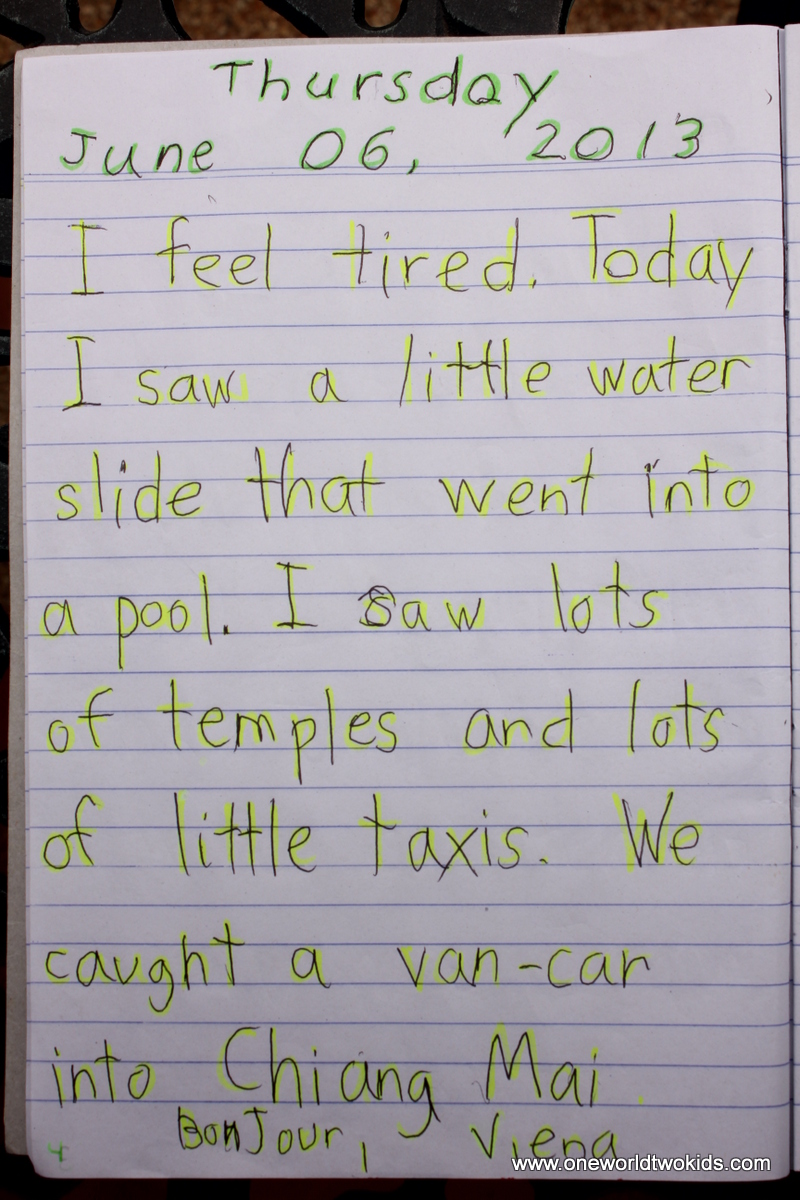 Thursday
June 06, 2013
I feel tired. Today
I saw a little water
slide that went into
a pool. I saw lots
of temples and lots
of little taxis. We
caught a van-car
into Chiang Mai.
BonJour, Viena
www.oneworldtwokids.com